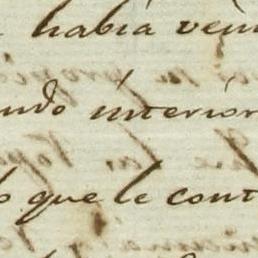 había veni
ndo interior
o que le cont